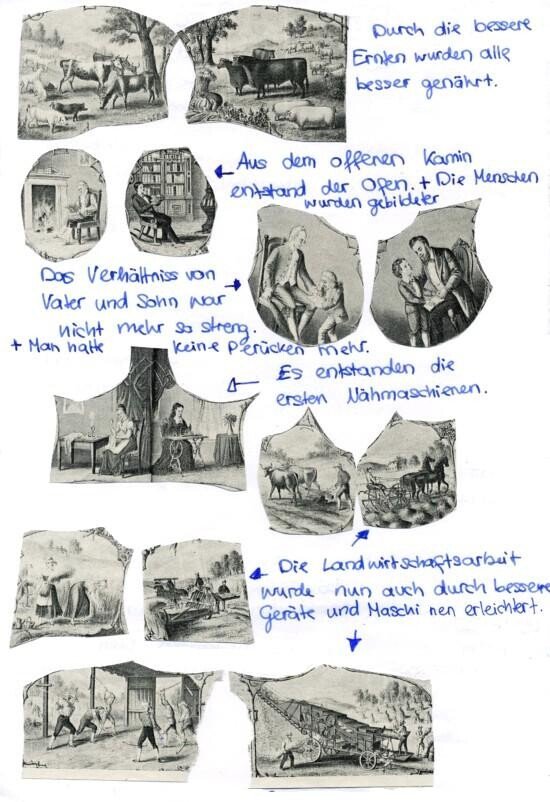 Durch die bessere
Ernten wurden alle
besser genährt.
Aus dem offenen Kamin
entstand der Ofen. + Die Menschen
wurden gebildeter
Das Verhältniss von
Vater und Sohn war
nicht mehr so streng.
+ Man hatte keine Perücken mehr.
Es entstanden die
ersten Nähmaschienen.
Die Landwirtschaftsarbeit
wurde nun auch durch bessere
Geräte und Maschinen erleichtert.